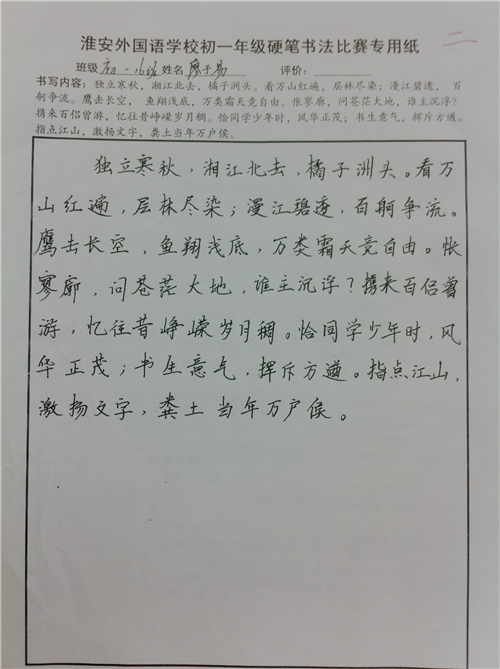 淮安外国语学校初一年级硬笔书法比赛专用纸
二
班级 初一·16班 姓名 廖千易 评价：
书写内容：独立寒秋，湘江北去，橘子洲头。看万山红遍，层林尽染；漫江碧透， 百
舸争流。鹰击长空， 鱼翔浅底，万类霜天竞自由。怅寥廓，问苍茫大地，谁主沉浮？
携来百侣曾游，忆往昔峥嵘岁月稠。恰同学少年时，风华正茂；书生意气，挥斥方遒。
指点江山，激扬文字，粪土当年万户侯。
独立寒秋，湘江北去，橘子洲头。看万
山红遍，层林尽染；漫江碧透，百舸争流。
鹰击长空，鱼翔浅底，万类霜天竞自由。怅
寥廓，问苍茫大地，谁主沉浮？携来百侣曾
游，忆往昔峥嵘岁月稠。恰同学少年时，风
华正茂；书生意气，挥斥方遒。指点江山，
激扬文字，粪土当年万户侯。